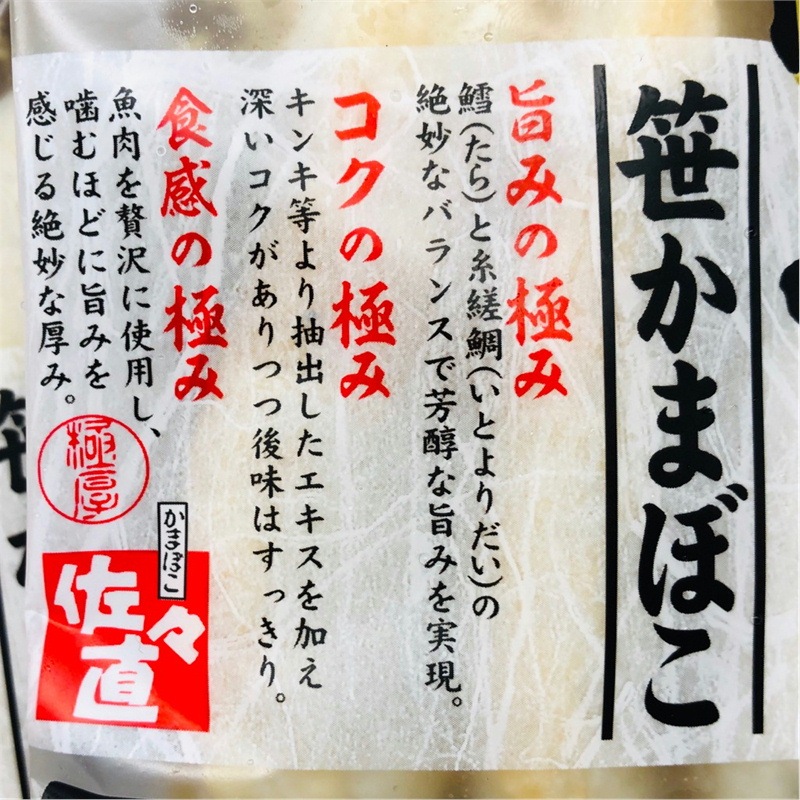 笹かまぼこ
旨みの極み
鱈(たら)と糸縒鯛(いとよりだい)の
絶妙なバランスで芳醇な旨みを実現。
コクの極み
キンキ等より抽出したエキスを加え
深いコクがありつつ後味はすっきり。
食感の極み
魚肉を贅沢に使用し、
噛むほどに旨みを
感じる絶妙な厚み。
極厚
かまぼこ
佐々直